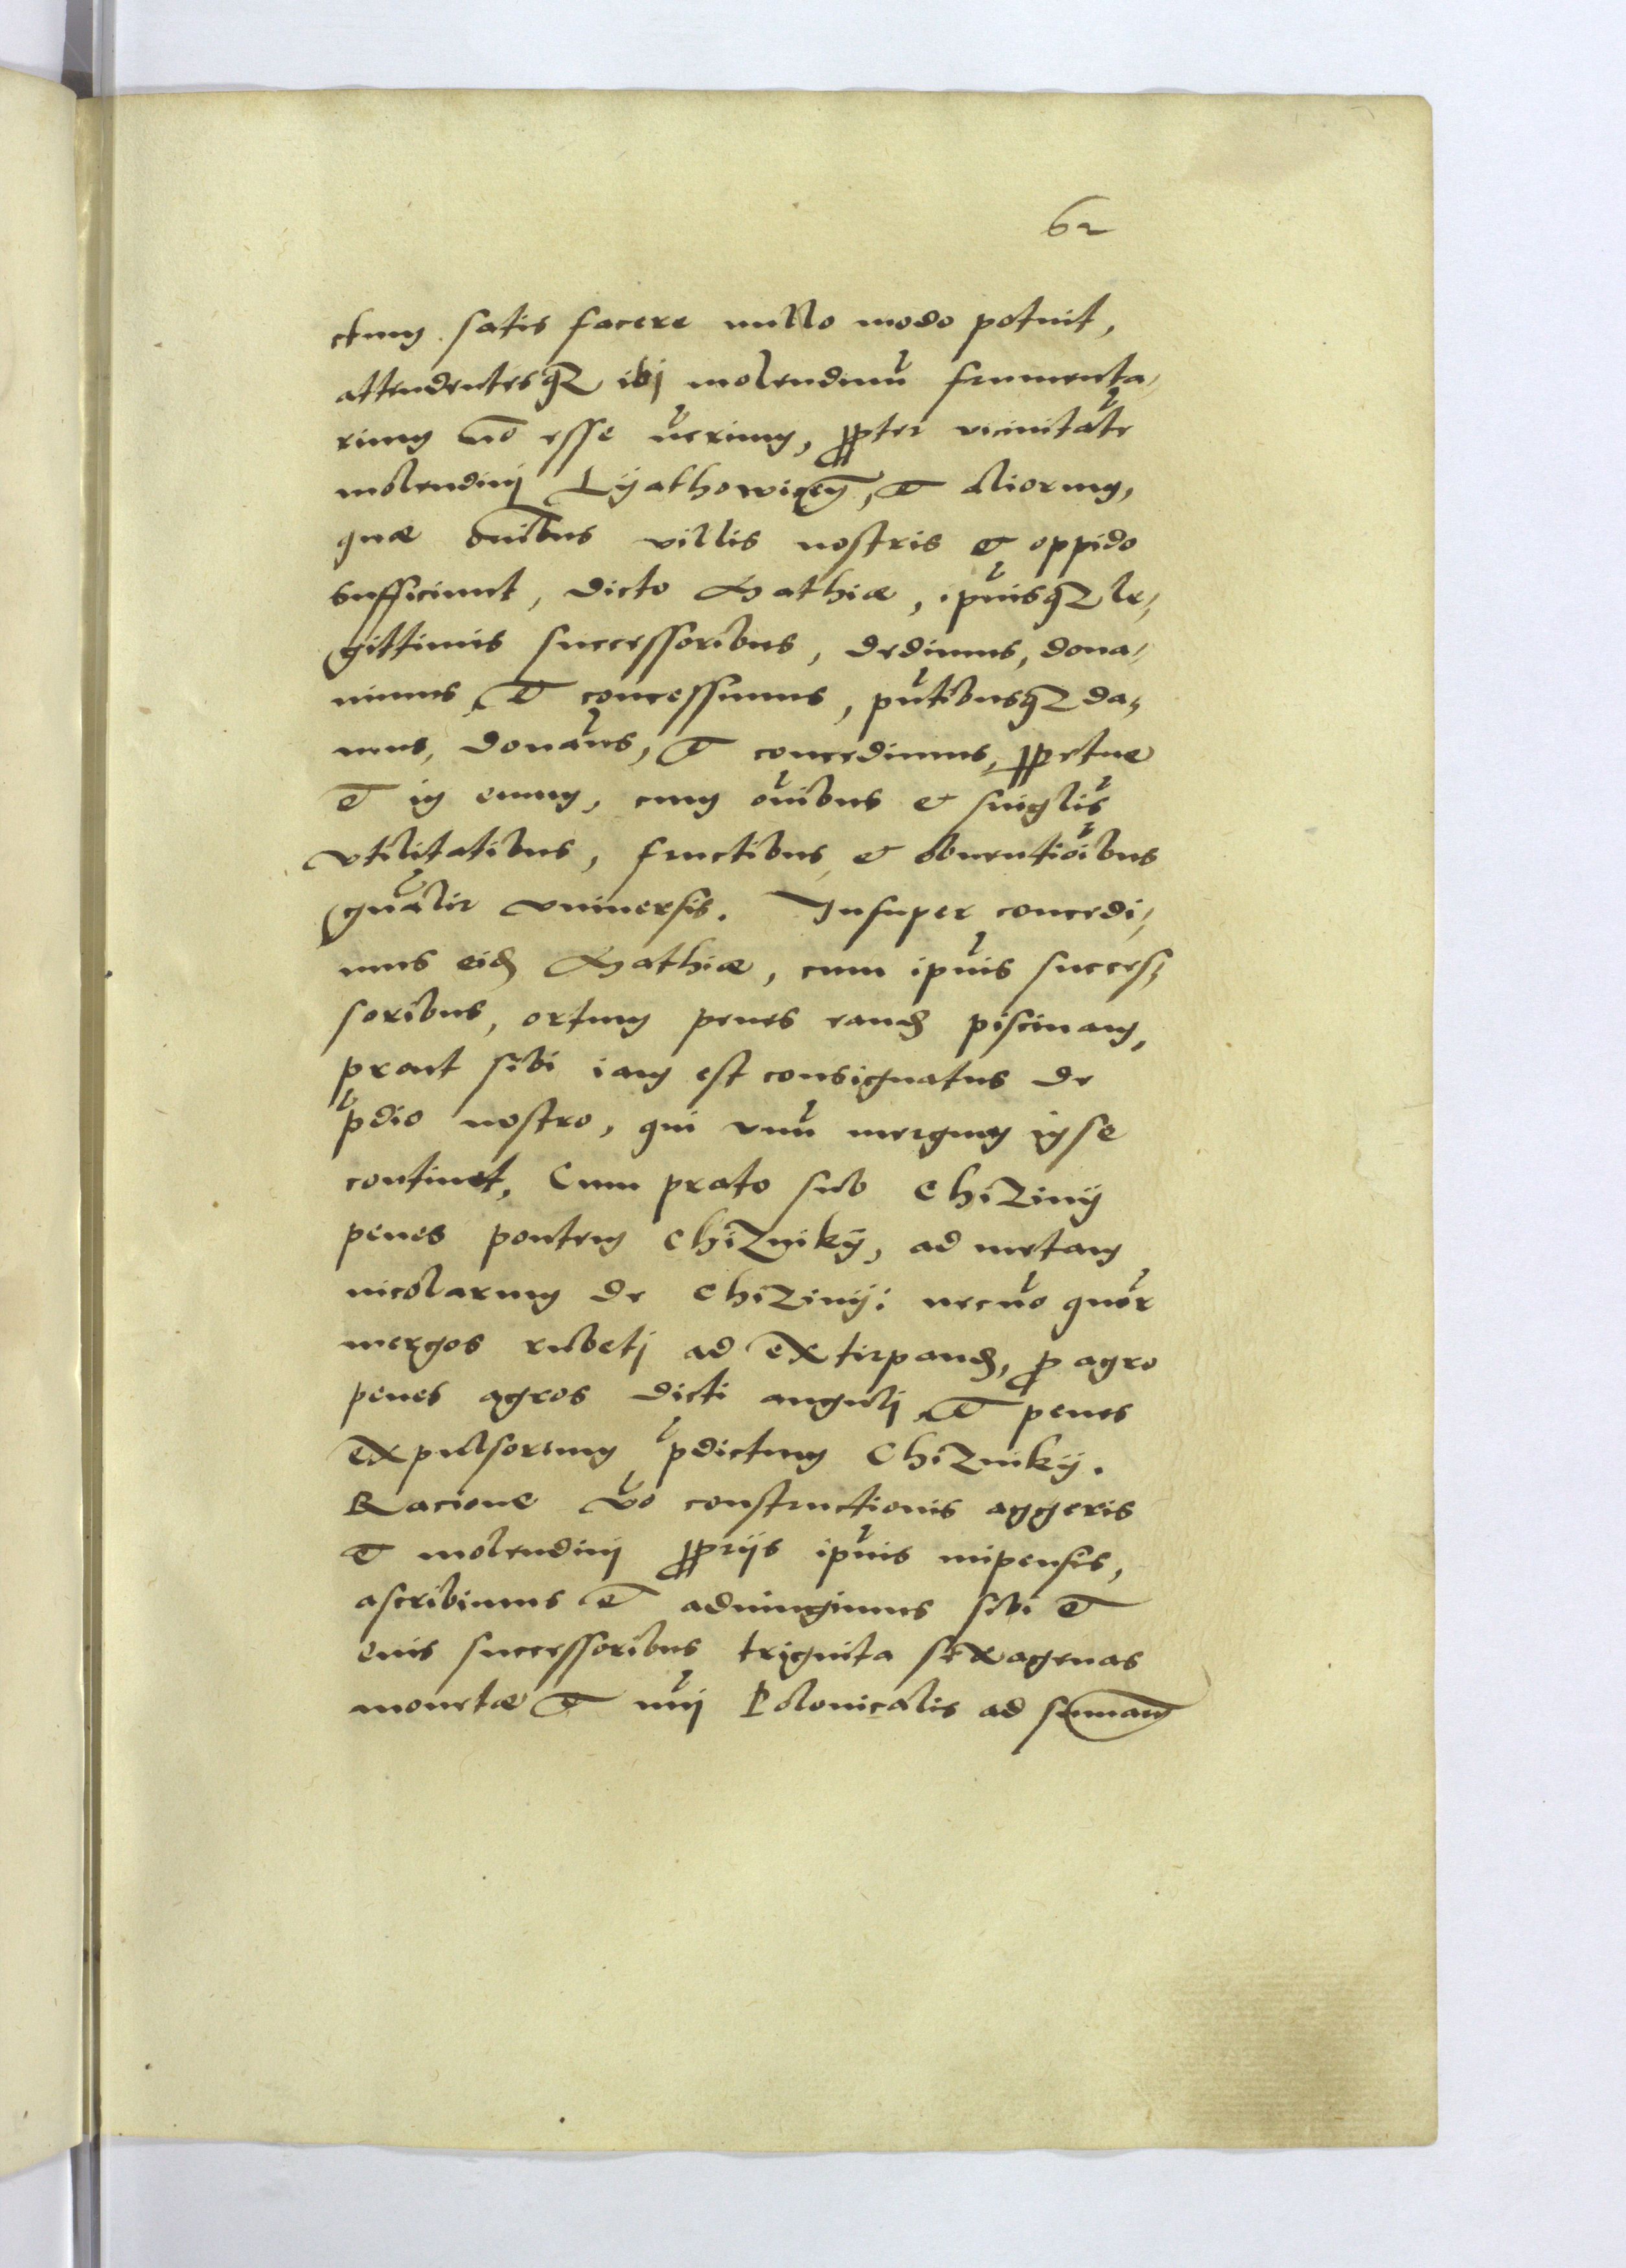 62
ctum satis facere nullo modo potuit,
attendentesq₃ ibj molendinū frumenta,
rium nō esse uerium, ꝓpter vicinitatē
molendinj Lÿathowicen̄, et aliorum,
quæ om̄ibus villis nostris et oppido
sufficiunt, dicto Mathiæ, ip̄iusq₃ le,
gittimis successoribus, dedimus, dona,
uimus, et concessimus, pn̄tibusq₃ da,
mus, donam̄us, et concedimus, ꝑpetue
et in euum, cum om̄ibus et singlis̄
vtilitatibus, fructibus, et obuentiōibus
gn̄alit̄ vniuersis. Insuper concedi,
mus eid̄ Mathiæ, cum ip̄ius succes,
soribus, ortum penes eand̄ piscinam,
prout sibi iam est consignatus de
p̄dio nostro, qui vnū mergum in se
continet, Cum prato sub Chizinÿ
penes pontem Chiznikÿ, ad metam
incolarum de Chizinÿ: necnō quor̄
mergos rubetj ad extirpand̄, ꝓ agro
penes agros dicti angulj, et penes
expulsorium p̄dictum Chiznikÿ.
Racione v̄o constructionis aggeris
et molendinj ꝓprijs ip̄ius impensis,
ascribimus et adiungimus sibi et
eius successoribus triginta sexagenas
monetæ et nūj Polonicalis ad summam